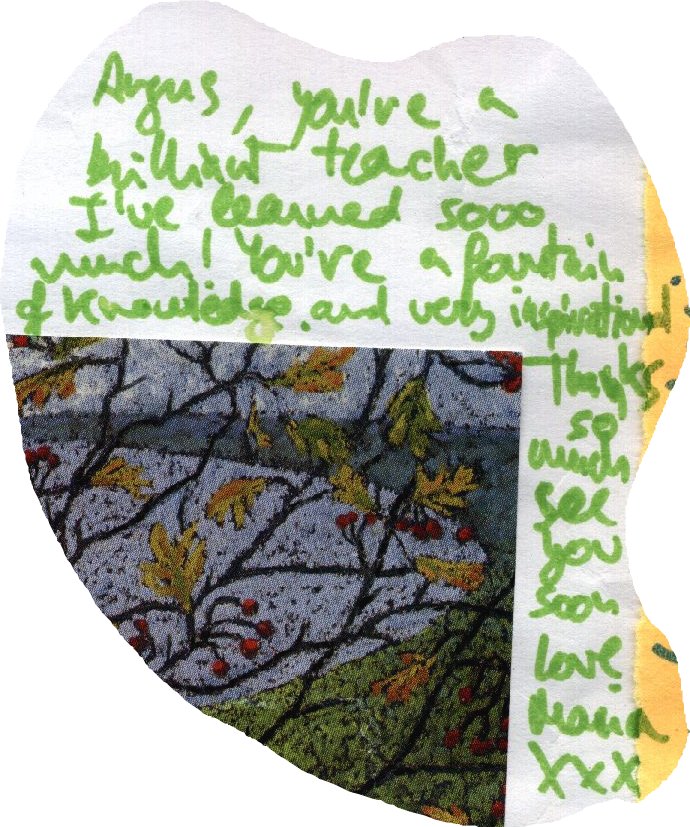 Angus, you're a
brilliant teacher
I've learned sooo
much! You're a fountain
of knowledge and very inspirational
Thanks
so
much
see
you
soon
love
Maria
xxx